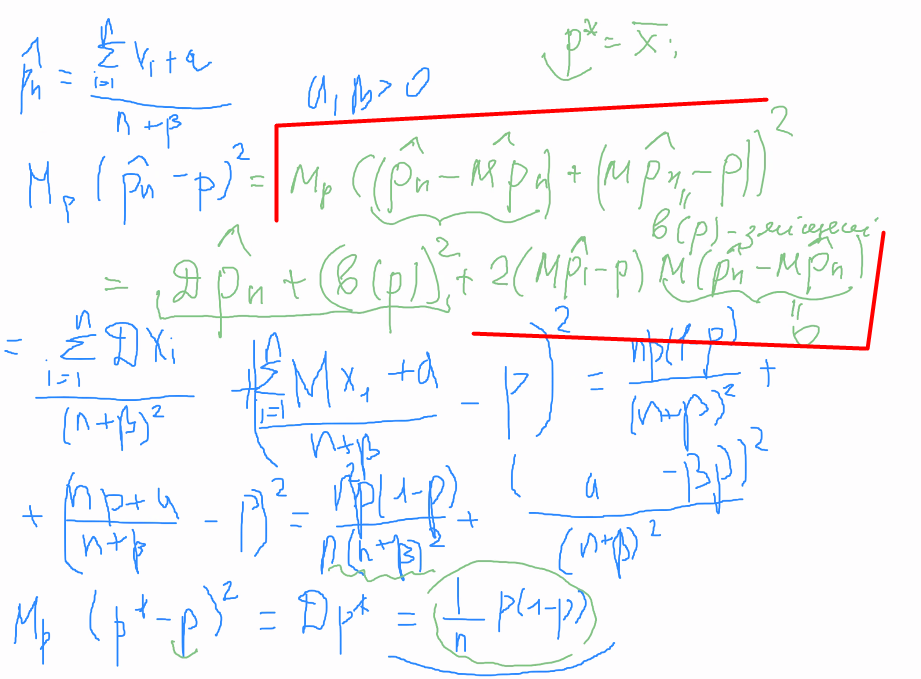 p* = X̄ᵢ
p̂ₙ = (∑ᵢ₌₁ⁿ Yᵢ + a) / (n + β)    a, β > 0
Mₚ (p̂ₙ − p)² = Mₚ ((p̂ₙ − M p̂ₙ) + (M p̂ₙ − p))²
в(p) - зміщення
= Д p̂ₙ + (в(p))² + 2(M p̂₁ − p) M(p̂ₙ − M p̂ₙ)
= 0
= (∑ᵢ₌₁ⁿ Д Xᵢ) / (n+β)² + ((∑ᵢ₌₁ⁿ M x₁ + a) / (n+β) − p)² = np(1-p) / (n+β)² +
+ ((np + a) / (n+β) − p)² = n²p(1-p) / n(n+β)² + (a − βp)² / (n+β)²
Mₚ (p* − p)² = Д p* = 1/n p(1-p)